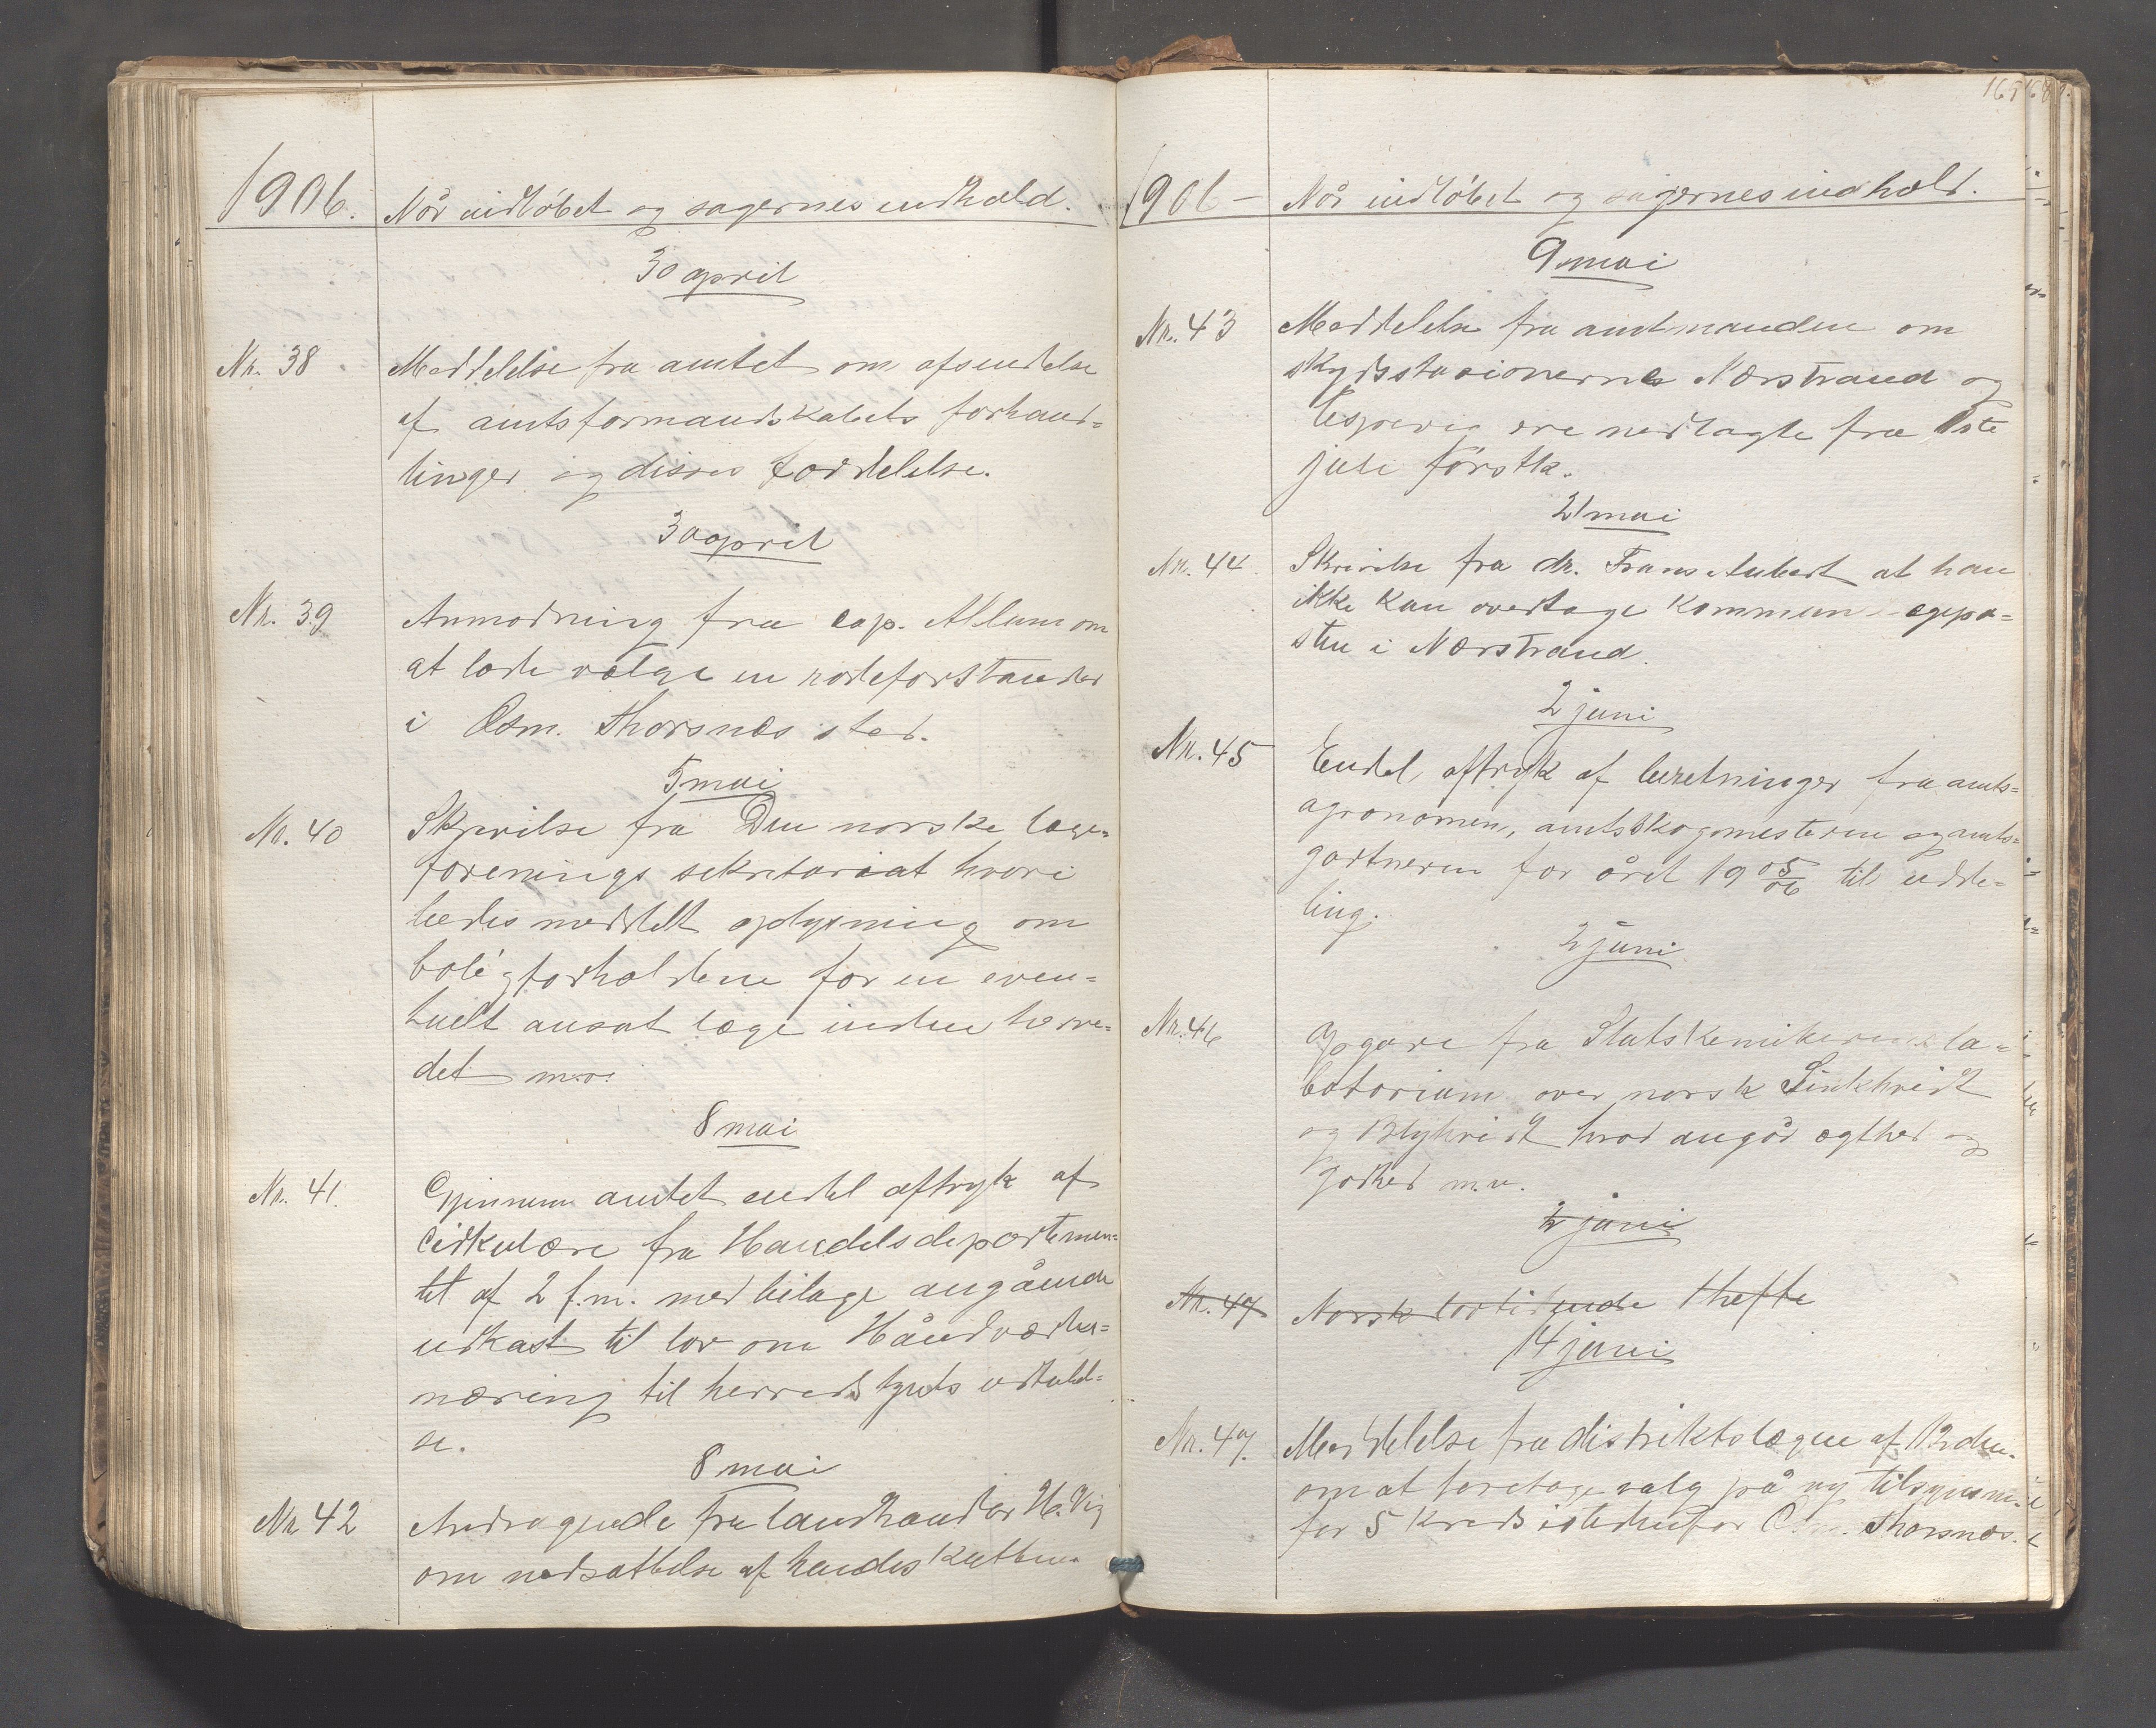 1906. Når indløbet og sagernes indhold.
30 april
Nr. 38 Meddelelse fra amtet om afsendelse
af amtsformandskabets forhand=
linger og disses fordelelse.
30 april
Nr. 39 Anmodning fra cap. Allum om
at lade vælge en rodeforstander
i Osm. Thorsnæs sted.
5 mai
Nr. 40 Skrivelse fra Den norske læge=
forenings sekretariat hvori
bedes meddelt oplysning om
boligforholdene for en even=
tuelt ansat læge inden herre=
det m.v.
8 mai
Nr. 41. Gjennem amtet endel aftryk af
Cirkulære fra Handelsdepartemen=
tet af 2 f.m. med bilage angående
udkast til lov om Håndværks=
næring til herredstyrets udtalel=
se.
8 mai
Nr 42 Andragende fra landhandler H. Vig
om nedsættelse af handelskatten.
1906 - Når indløbet og sagernes indhold.
9 mai
Nr. 43 Meddelelse fra amtmanden om
skydsstasionerne Nærstrand og
Espevig ere nedlagte fra 1ste
juli førstk.
21 mai
Nr. 44 Skrivelse fra dr. Frans Aubert at han
ikke kan overtage kommunelægepo=
sten i Nærstrand.
2 juni
Nr. 45 Endel aftryk af beretninger fra amts=
agronomen, amtsskogmesteren og amts=
gartneren for året 1905/06 til udde=
ling.
2 juni
Nr. 46 Opgave fra Statskemikerens la=
botorium over norsk Sinkhvidt
og Blyhvidt hvad angår ægthed og
godhed m.v.
2 juni
Nr. 47 Norsk lovtidende 1 hefte
14 juni
Nr. 47. Meddelelse fra distriktslægen af 12 dns.
om at foretage valg på ny tilsynsm.
for 5 kreds istedenfor Osm. Thorsnæs.